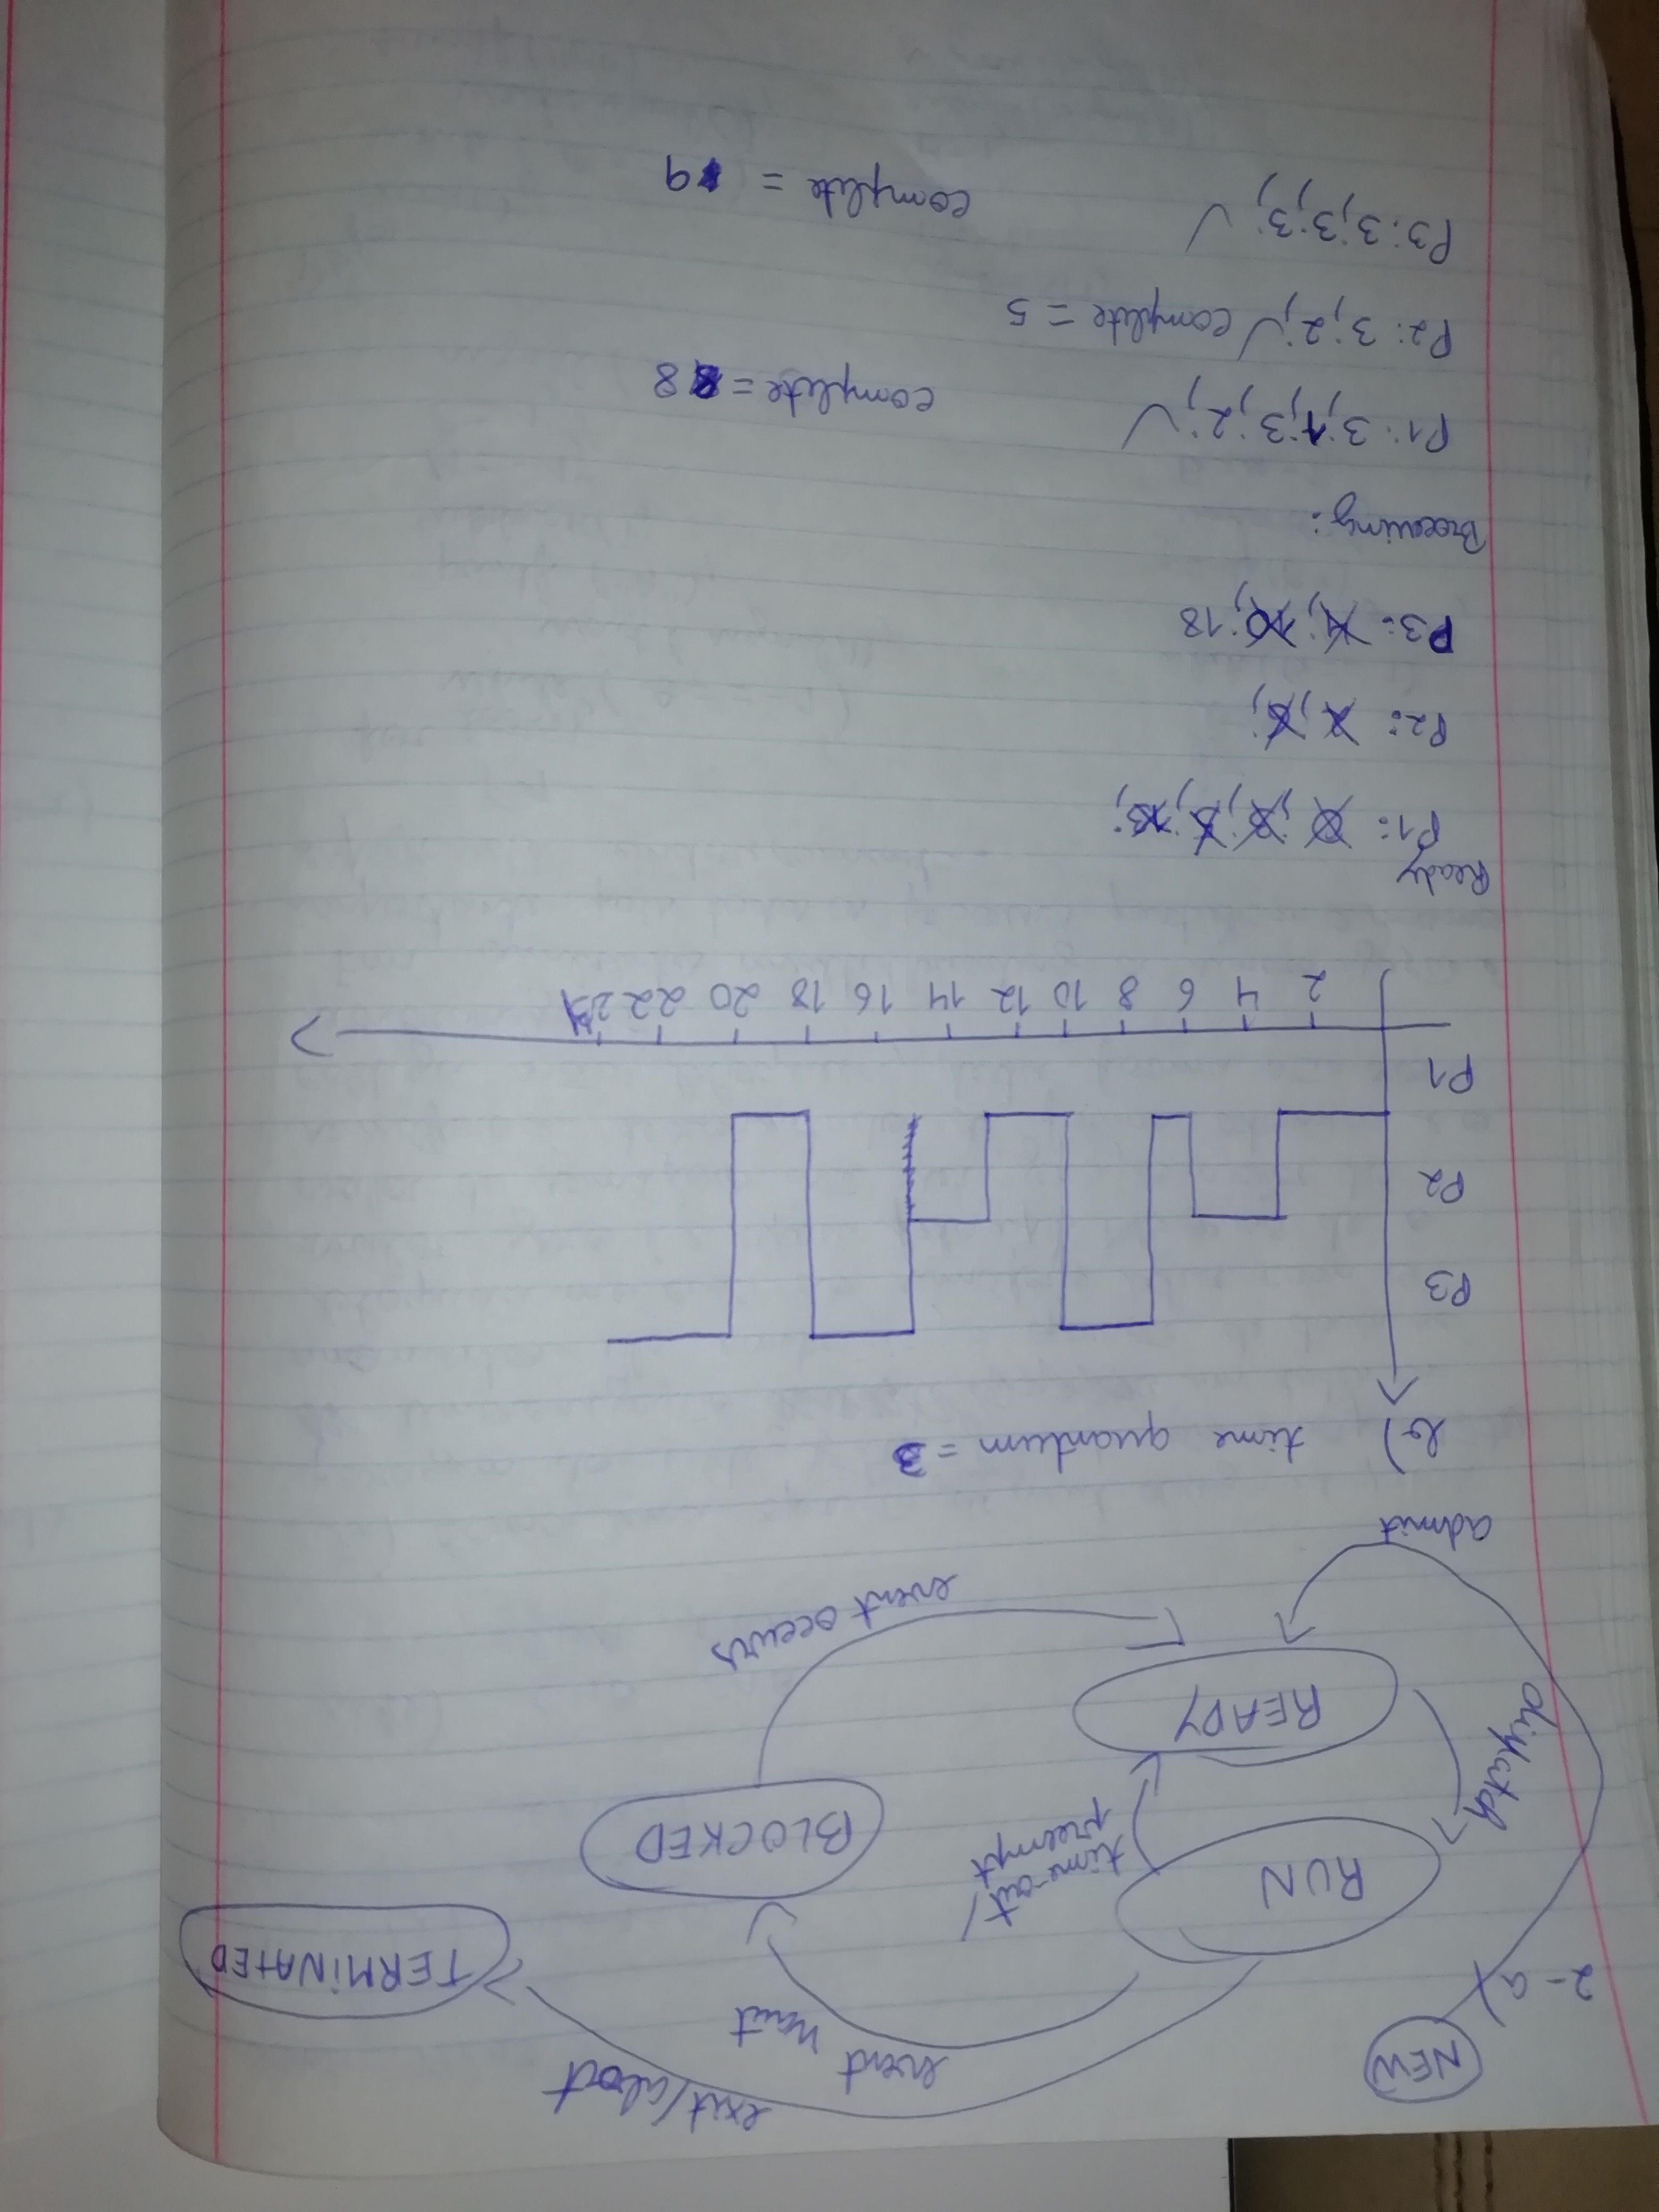 NEW
exit/abort
event wait
2- a)
TERMINATED
RUN
time-out/
preempt
BLOCKED
dispatch
READY
event occurs
admit
b) time quantum = 3
P3
P2
P1
2 4 6 8 10 12 14 16 18 20 22 23
Ready
P1: 0; 3; 5; 13;
P2: 2; 6;
P3: 4; 10; 18
P1: 3;1;3;2; ✓ complete = 8
P2: 3;2; ✓ complete = 5
P3: 3;3;3; ✓ complete = 9